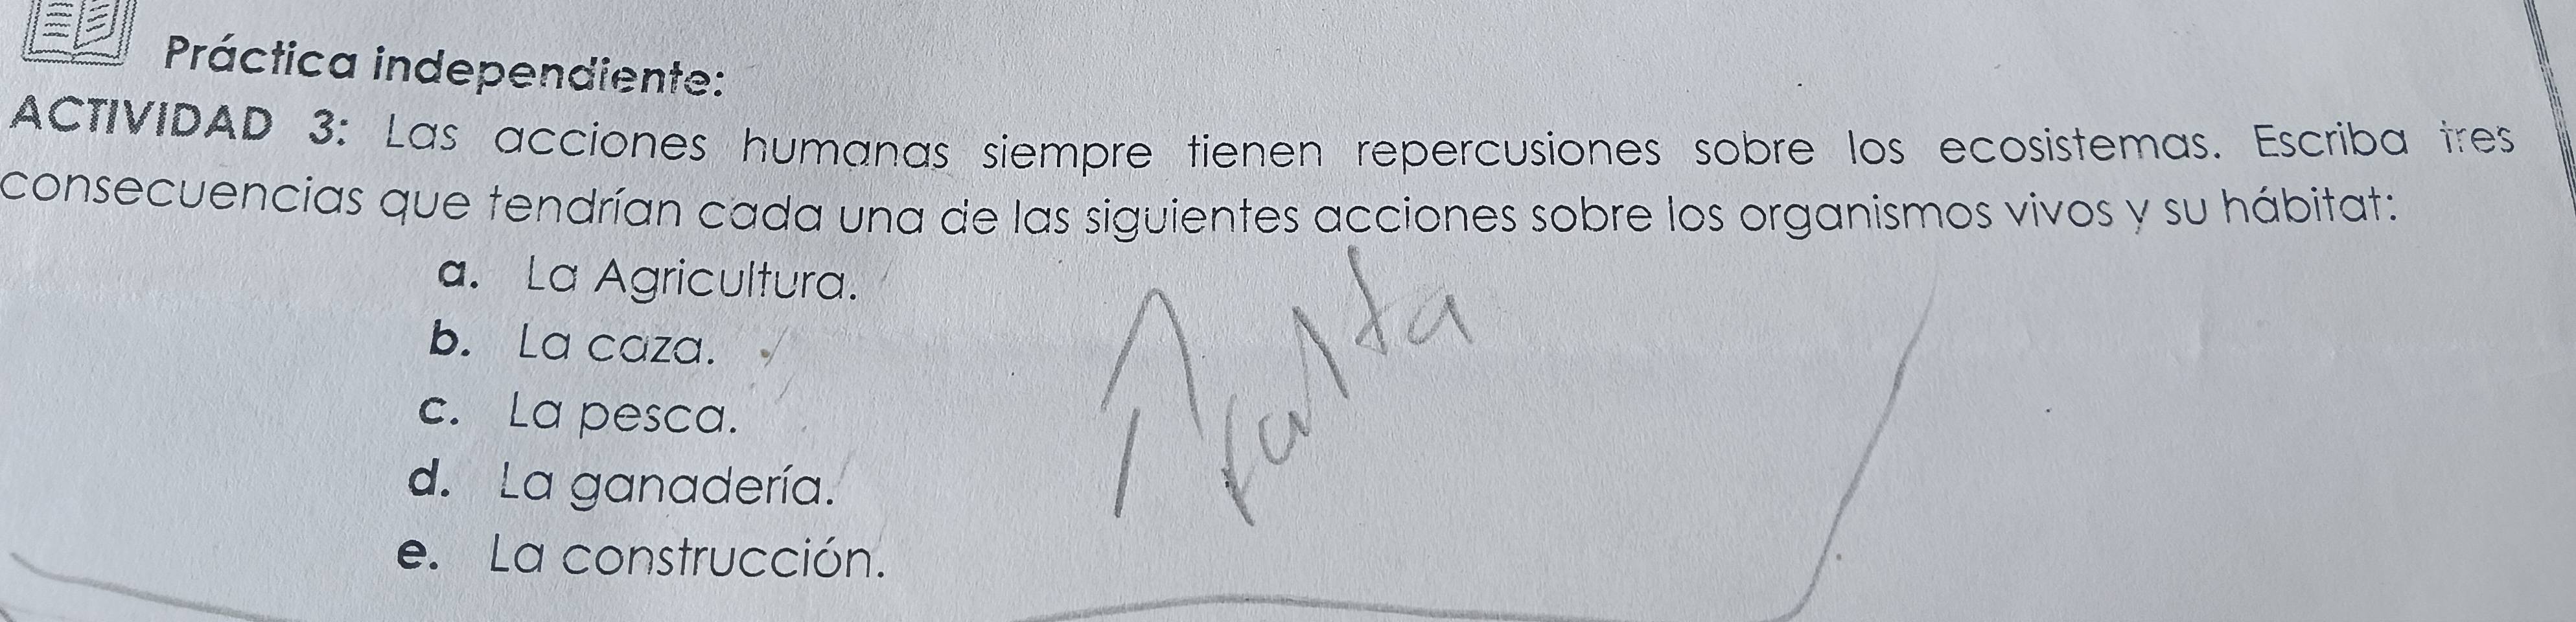 Práctica independiente:
ACTIVIDAD 3: Las acciones humanas siempre tienen repercusiones sobre los ecosistemas. Escriba tres
consecuencias que tendrían cada una de las siguientes acciones sobre los organismos vivos y su hábitat:
a. La Agricultura.
b. La caza.
c. La pesca.
d. La ganadería.
e. La construcción.
Falta